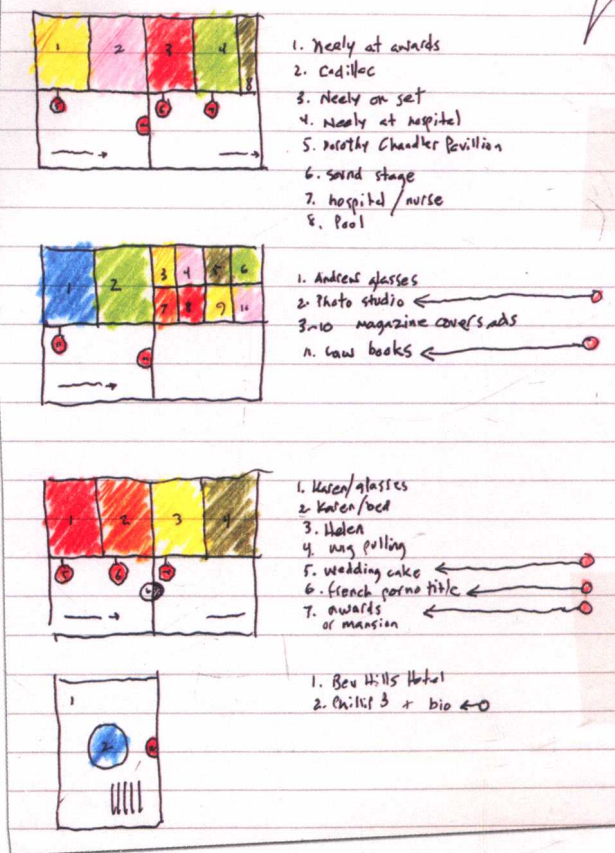 1 2 3 4 8
5 6 7
1. Neely at awards
2. Cadillac
3. Neely on set
4. Neely at hospital
5. Dorothy Chandler Pavillion
6. sound stage
7. hospital / nurse
8. Pool
1 2 3 4 5 6
7 8 9 10
11
1. Andrew glasses
2. Photo studio
3-10 magazine covers ads
11. Law books
1 2 3 4
5 6 7
1. Karen/glasses
2. Karen/bed
3. Helen
4. wig pulling
5. wedding cake
6. french porno title
7. awards
or mansion
1
2
1. Bev Hills Hotel
2. Phillip 3 + bio